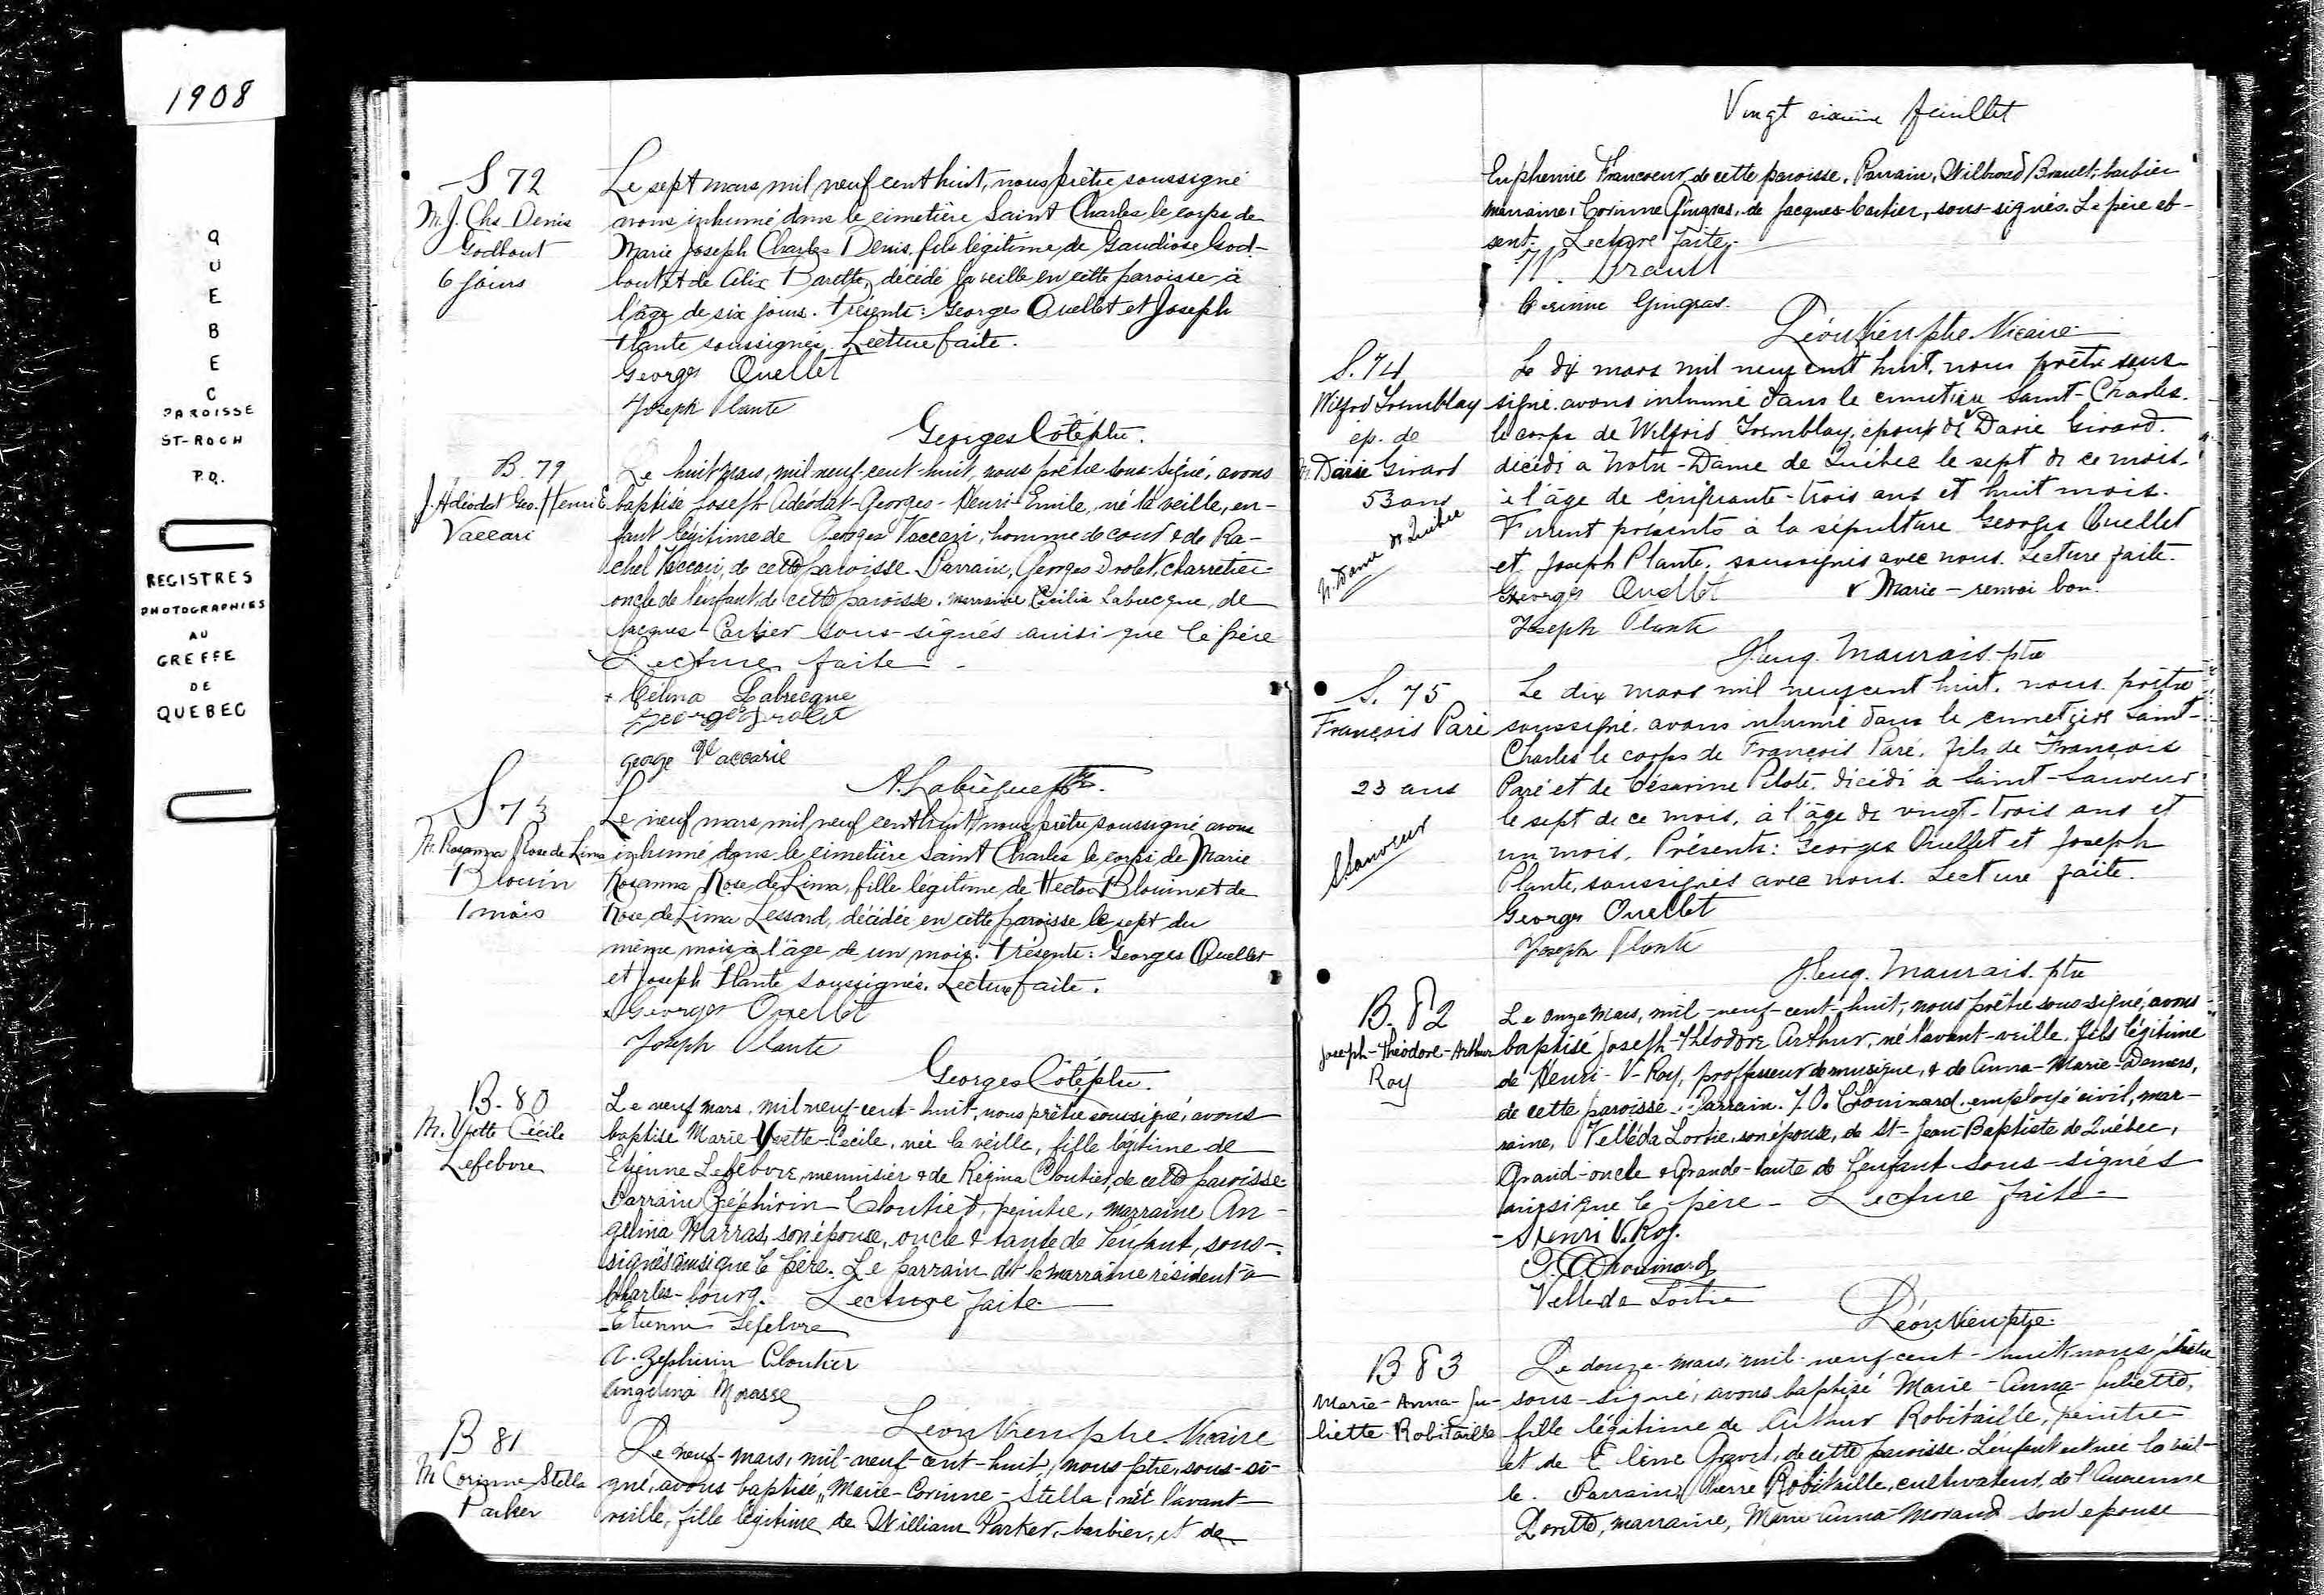 1908
QUEBEC
PAROISSE
ST-ROCH
P.Q.
REGISTRES
PHOTOGRAPHIES
AU
GREFFE
DE
QUEBEC
S 72
M. J. Chs Denis
Godbout
6 jours
Le sept mars mil neuf cent huit, nous prêtre soussigné
avons inhumé dans le cimetière Saint Charles le corps de
Marie Joseph Charles Denis, fils légitime de Gaudiose God-
bout et de Alix Barette, décédé la veille en cette paroisse à
l'âge de six jours. Présents: Georges Ouellet et Joseph
Plante soussignés. Lecture faite.
Georges Ouellet
Joseph Plante
Georges Côté ptre.
B. 79
J. Adéodat Geo. Henri E
Vaccari
Le huit mars, mil-neuf-cent-huit, nous prêtre sous-signé, avons
baptisé Joseph Adéodat-Georges-Henri-Emile, né la veille, en-
fant légitime de Georges Vaccari, homme de cour & de Ra-
chel Vaccari, de cette paroisse. Parrain, Georges Drolet, charretier
oncle de l'enfant, de cette paroisse. marraine Célina Labrecque, de
Jacques-Cartier sous-signés ainsi que le père
Lecture faite -
+ Célina Labrecque
Georges Drolet
George Vaccarie
A. Labrèque ptre.
S 73
M. Rosanna Rose de Lima
Blouin
1 mois
Le neuf mars mil neuf cent huit, nous prêtre soussigné avons
inhumé dans le cimetière Saint Charles le corps de Marie
Rosanna Rose de Lima, fille légitime de Hector Blouin et de
Rose de Lima Lessard, décédée en cette paroisse le sept du
même mois à l'âge de un mois. Présents: Georges Ouellet
et Joseph Plante soussignés. Lecture faite.
Georges Ouellet
Joseph Plante
Georges Côté ptre.
B. 80
M. Yvette Cécile
Lefebvre
Le neuf mars, mil neuf-cent-huit, nous prêtre soussigné, avons
baptisé Marie-Yvette-Cécile, née la veille, fille légitime de
Etienne Lefebvre, menuisier & de Régina Cloutier, de cette paroisse.
Parrain Zéphirin Cloutier, peintre, marraine An-
gelina Marras, son épouse, oncle & tante de l'enfant, sous-
signés ainsi que le père. Le parrain et la marraine résident à
Charles-bourg. Lecture faite.
Etienne Lefebvre
A. Zephirin Cloutier
Angelina Morasse
Léon Vien ptre. Vicaire
B 81
M Corinne Stella
Parker
Le neuf-mars, mil-neuf-cent-huit, nous ptre, sous-si-
gné, avons baptisé, Marie-Corinne-Stella, née l'avant
veille, fille légitime de William Parker, barbier, et de
Vingt sixième feuillet
Euphemie Francoeur, de cette paroisse. Parrain, Wilbrod Brault, barbier
marraine, Corinne Gingras, de Jacques-Cartier, sous-signés. Le père ab-
sent. Lecture faite.
W. Brault
Corinne Gingras.
Léon Vien ptre. Vicaire
S. 74
Wilfrid Tremblay
ép. de
M. Darie Girard
53 ans
N. Dame de Québec
Le dix mars mil neuf cent huit, nous prêtre sous-
signé avons inhumé dans le cimetière Saint-Charles
le corps de Wilfrid Tremblay, époux de Darie Girard.
décédé a Notre-Dame de Québec le sept de ce mois,
à l'âge de cinquante-trois ans et huit mois.
Furent présents à la sépulture Georges Ouellet
et Joseph Plante, soussignés avec nous. Lecture faite.
Georges Ouellet
v Marie - renvoi bon.
Joseph Plante
J. Eug. Maurais ptre
S. 75
François Paré
23 ans
S. Sauveur
Le dix mars mil neuf cent huit, nous prêtre
soussigné avons inhumé dans le cimetière Saint-
Charles le corps de François Paré, fils de François
Paré et de Césarine Pilote, décédé à Saint-Sauveur
le sept de ce mois, à l'âge de vingt-trois ans et
un mois. Présents: Georges Ouellet et Joseph
Plante, soussignés avec nous. Lecture faite.
Georges Ouellet
Joseph Plante
J. Eug. Maurais ptre
B. 82
Joseph-Théodore-Arthur
Roy
Le onze mars, mil-neuf-cent-huit, nous prêtre sous-signé, avons
baptisé Joseph-Théodore Arthur, né l'avant-veille, fils légitime
de Henri-V-Roy, proffesseur de musique, & de Anna-Marie-Demers,
de cette paroisse. Parrain. J. O. Chouinard employé civil, mar-
raine, Velléda Lortie, son épouse, de St-Jean Baptiste de Québec,
Grand-oncle & Grande-tante de l'enfant sous-signés
ainsi que le père - Lecture faite -
Henri V. Roy.
J. O. Chouinard
Velleda Lortie
Léon Vien ptre.
B 83
Marie-Anna-Ju-
liette Robitaille
Le douze-mars, mil-neuf-cent-huit, nous prêtre
sous-signé, avons baptisé Marie-Anna-Juliette,
fille légitime de Arthur Robitaille, peintre
et de Elène Gravel, de cette paroisse. L'enfant est née la veil-
le. Parrain, Pierre Robitaille, cultivateur, de l'Ancienne
Lorette, marraine, Marie Anna Morand son épouse